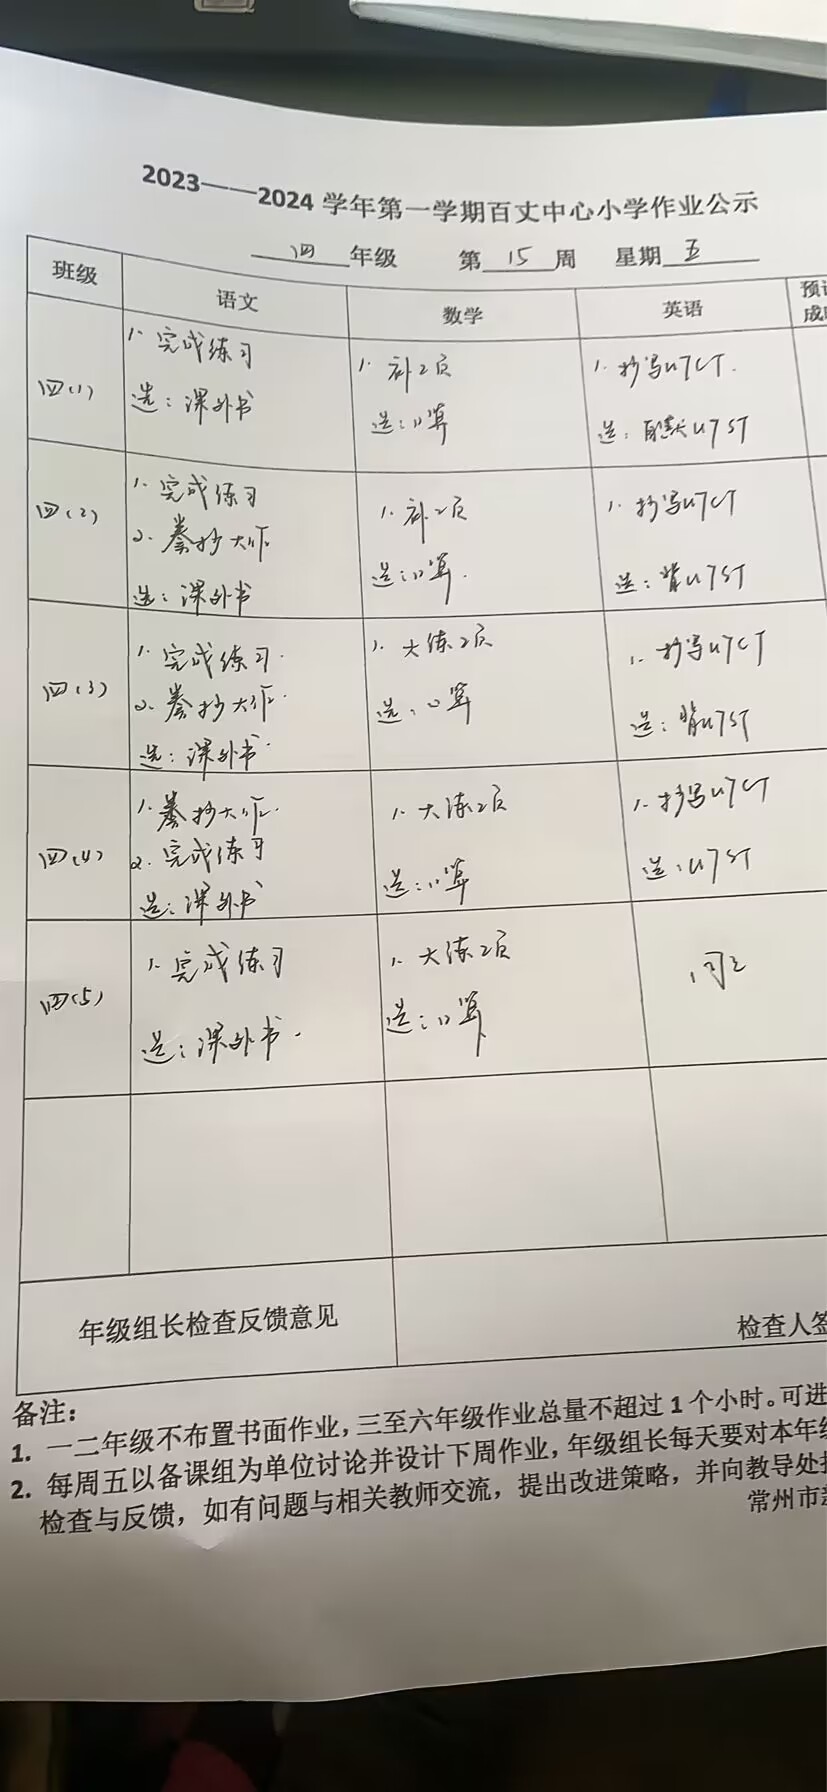 2023——2024 学年第一学期百丈中心小学作业公示
四 年级 第 15 周 星期 五
班级 语文 数学 英语
四(1)
1. 完成练习
选：课外书
1. 补2页
选：口算
1. 抄写U7CT.
选：自默U7ST
四(2)
1. 完成练习
2. 誊抄大作
选：课外书
1. 补2页
选：口算.
1. 抄写U7CT
选：背U7ST
四(3)
1. 完成练习.
2. 誊抄大作.
选：课外书.
1. 大练2页
选：口算
1. 抄写U7CT
选：背U7ST
四(4)
1. 誊抄大作.
2. 完成练习
选：课外书
1. 大练2页
选：口算
1. 抄写U7CT
选：U7ST
四(5)
1. 完成练习
选：课外书.
1. 大练2页
选：口算
年级组长检查反馈意见
检查人
备注：
1. 一二年级不布置书面作业，三至六年级作业总量不超过 1 个小时。可进
2. 每周五以备课组为单位讨论并设计下周作业，年级组长每天要对本年级
检查与反馈，如有问题与相关教师交流，提出改进策略，并向教导处
常州市